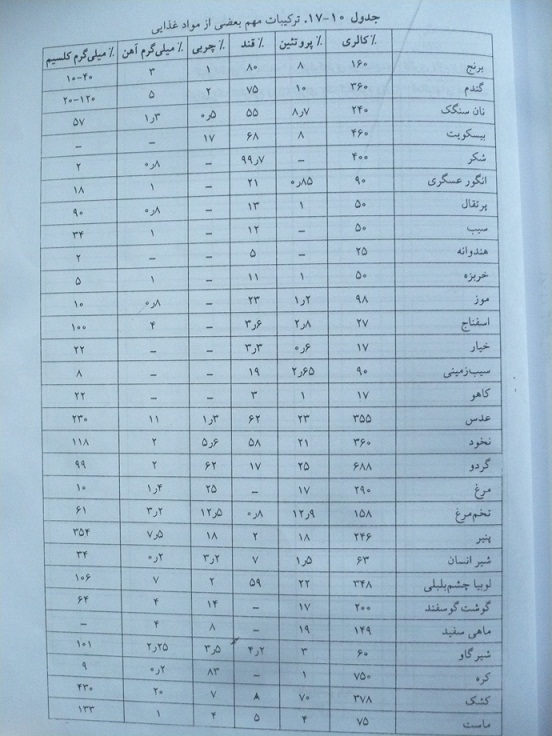 جدول ۱۰-۱۷. ترکیبات مهم بعضی از مواد غذایی
٪ کالری ٪ پروتئین ٪ قند ٪ چربی ٪ میلی‌گرم آهن ٪ میلی‌گرم کلسیم
برنج ۱۶۰ ۸ ۸۰ ۱ ۳ ۱۰-۴۰
گندم ۳۶۰ ۱۰ ۷۵ ۲ ۵ ۲۰-۱۲۰
نان سنگک ۲۴۰ ۸٫۷ ۵۵ ۰٫۵ ۱٫۳ ۵۷
بیسکویت ۴۶۰ ۸ ۶۸ ۱۷ – –
شکر ۴۰۰ – ۹۹٫۷ – ۰٫۸ ۲
انگور عسگری ۹۰ ۰٫۸۵ ۲۱ – ۱ ۱۸
پرتقال ۵۰ ۱ ۱۳ – ۰٫۸ ۹۰
سیب ۵۰ – ۱۲ – ۱ ۳۴
هندوانه ۲۵ – ۵ – – ۲
خربزه ۵۰ ۱ ۱۱ – ۱ ۵
موز ۹۸ ۱٫۲ ۲۳ – ۰٫۸ ۱۰
اسفناج ۲۷ ۲٫۸ ۳٫۶ – ۴ ۱۰۰
خیار ۱۷ ۰٫۶ ۳٫۳ – – ۲۲
سیب‌زمینی ۹۰ ۲٫۶۵ ۱۹ – – ۸
کاهو ۱۷ ۱ ۳ – – ۲۲
عدس ۳۵۵ ۲۳ ۶۲ ۱٫۳ ۱۱ ۲۳۰
نخود ۳۶۰ ۲۱ ۵۸ ۵٫۶ ۲ ۱۱۸
گردو ۶۸۸ ۲۵ ۱۷ ۶۲ ۲ ۹۹
مرغ ۲۹۰ ۱۷ – ۲۵ ۱٫۴ ۱۰
تخم‌مرغ ۱۵۸ ۱۲٫۹ ۰٫۸ ۱۲٫۵ ۲٫۳ ۶۱
پنیر ۲۴۶ ۱۸ ۲ ۱۸ ۷٫۵ ۳۵۴
شیر انسان ۶۳ ۱٫۵ ۷ ۳٫۲ ۰٫۲ ۳۴
لوبیا چشم‌بلبلی ۳۴۸ ۲۲ ۵۹ ۲ ۷ ۱۰۶
گوشت گوسفند ۲۰۰ ۱۷ – ۱۴ ۴ ۶۴
ماهی سفید ۱۴۹ ۱۹ – ۸ ۴ –
شیر گاو ۶۰ ۳ ۴٫۲ ۳٫۵ ۲٫۲۵ ۱۰۱
کره ۷۵۰ ۱ – ۸۳ ۰٫۲ ۹
کشک ۳۷۸ ۷۰ ۸ ۷ ۲۰ ۴۳۰
ماست ۷۵ ۴ ۵ ۴ ۱ ۱۳۳